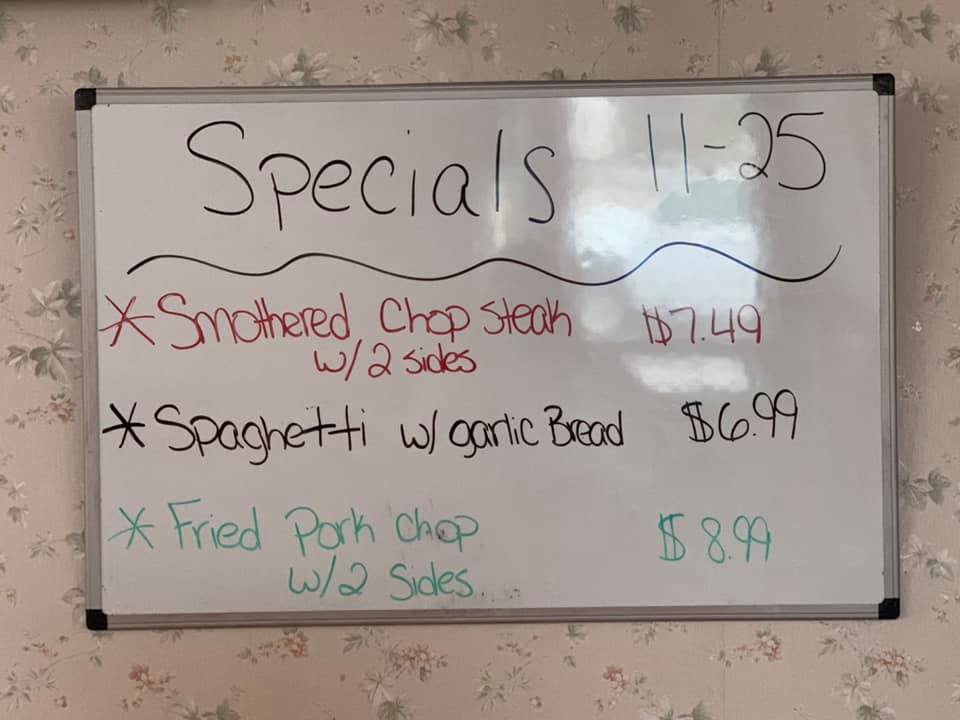 Specials 11-25
* Smothered Chop Steak $7.49
w/2 sides
* Spaghetti w/ garlic Bread $6.99
* Fried Pork Chop $8.99
w/2 Sides